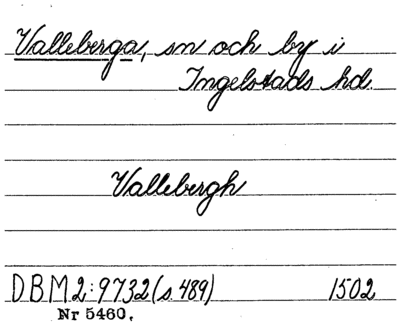 Valleberga, sn och by i
Ingelstads hd.
Vallebergh
DBM2:9732(s.489) 1502
Nr 5460.